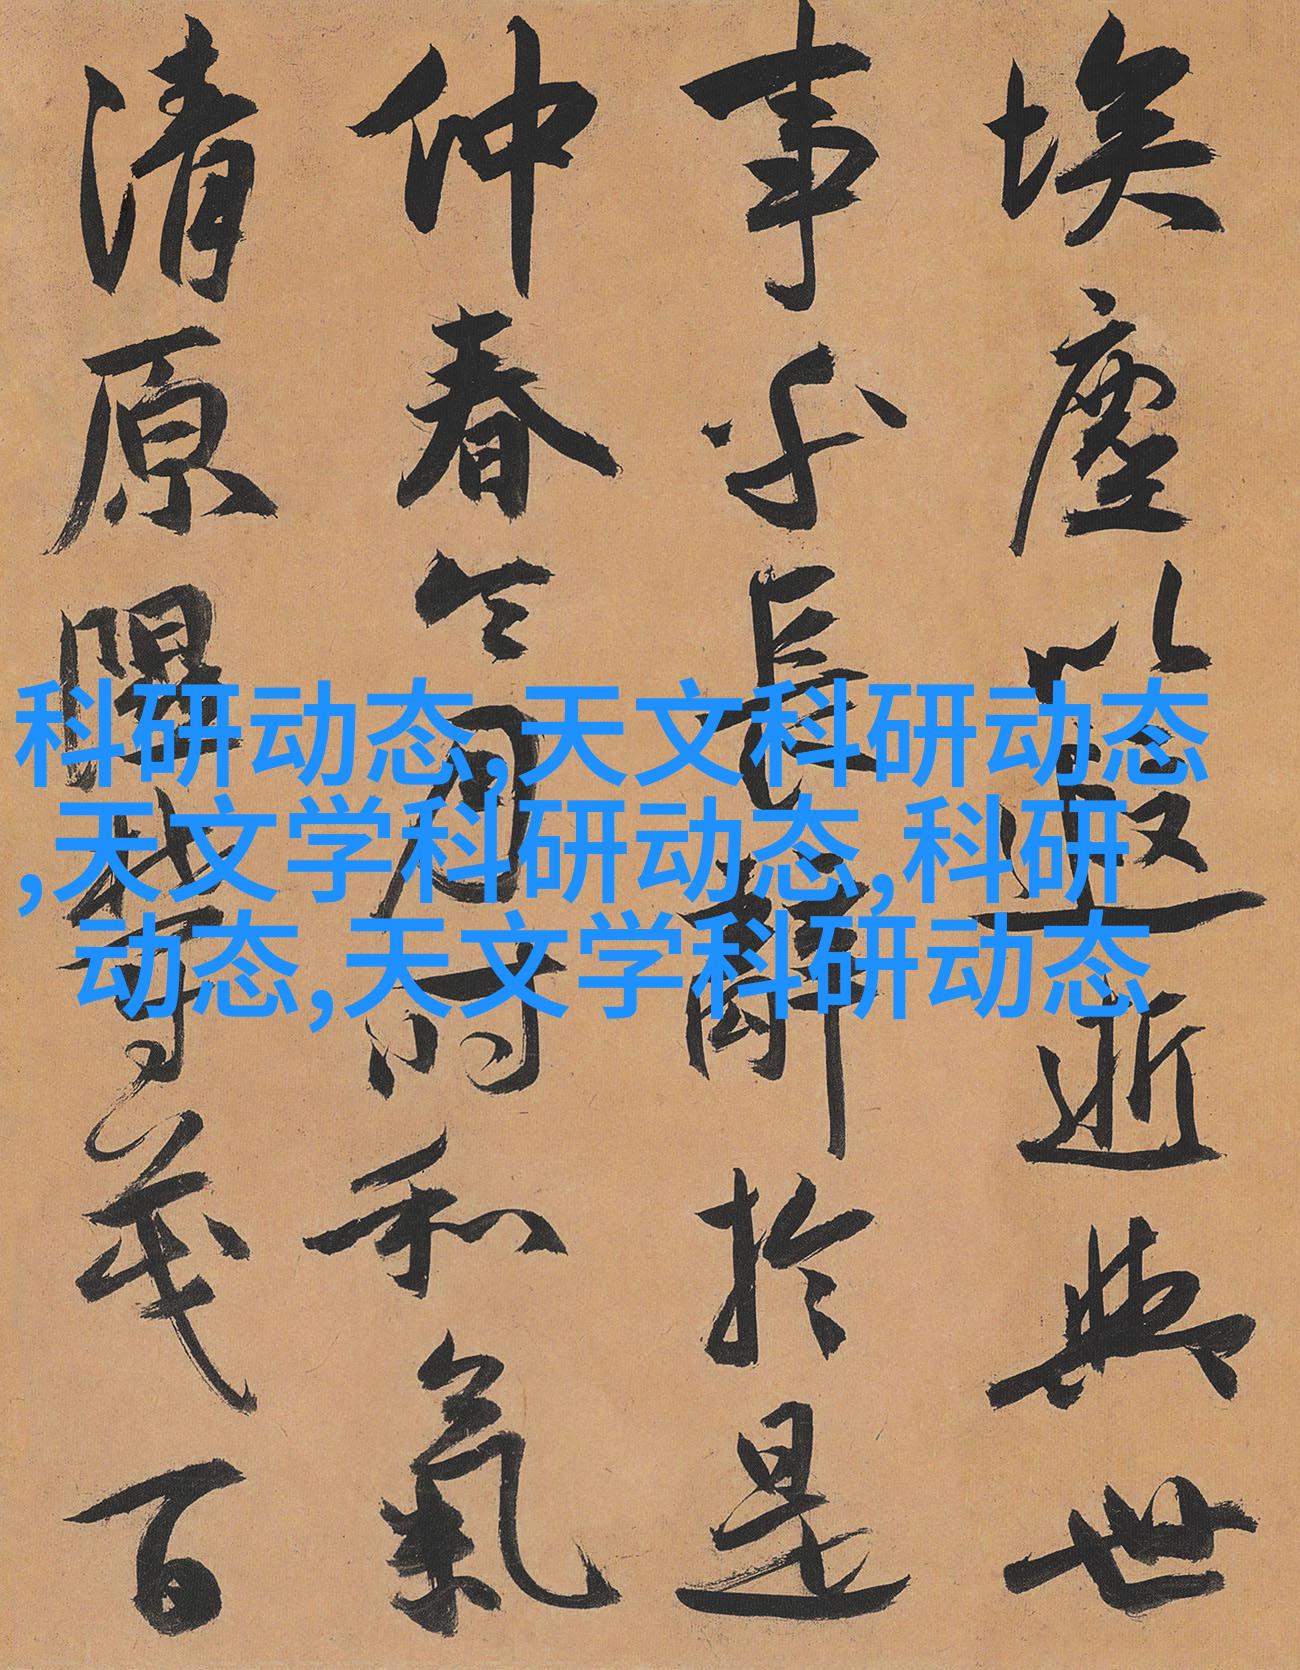 埃塵以遐逝與世
事乎長辭於是
仲春令月時和氣
清原隰鬱茂百
科研动态,天文科研动态
,天文学科研动态,科研
动态,天文学科研动态